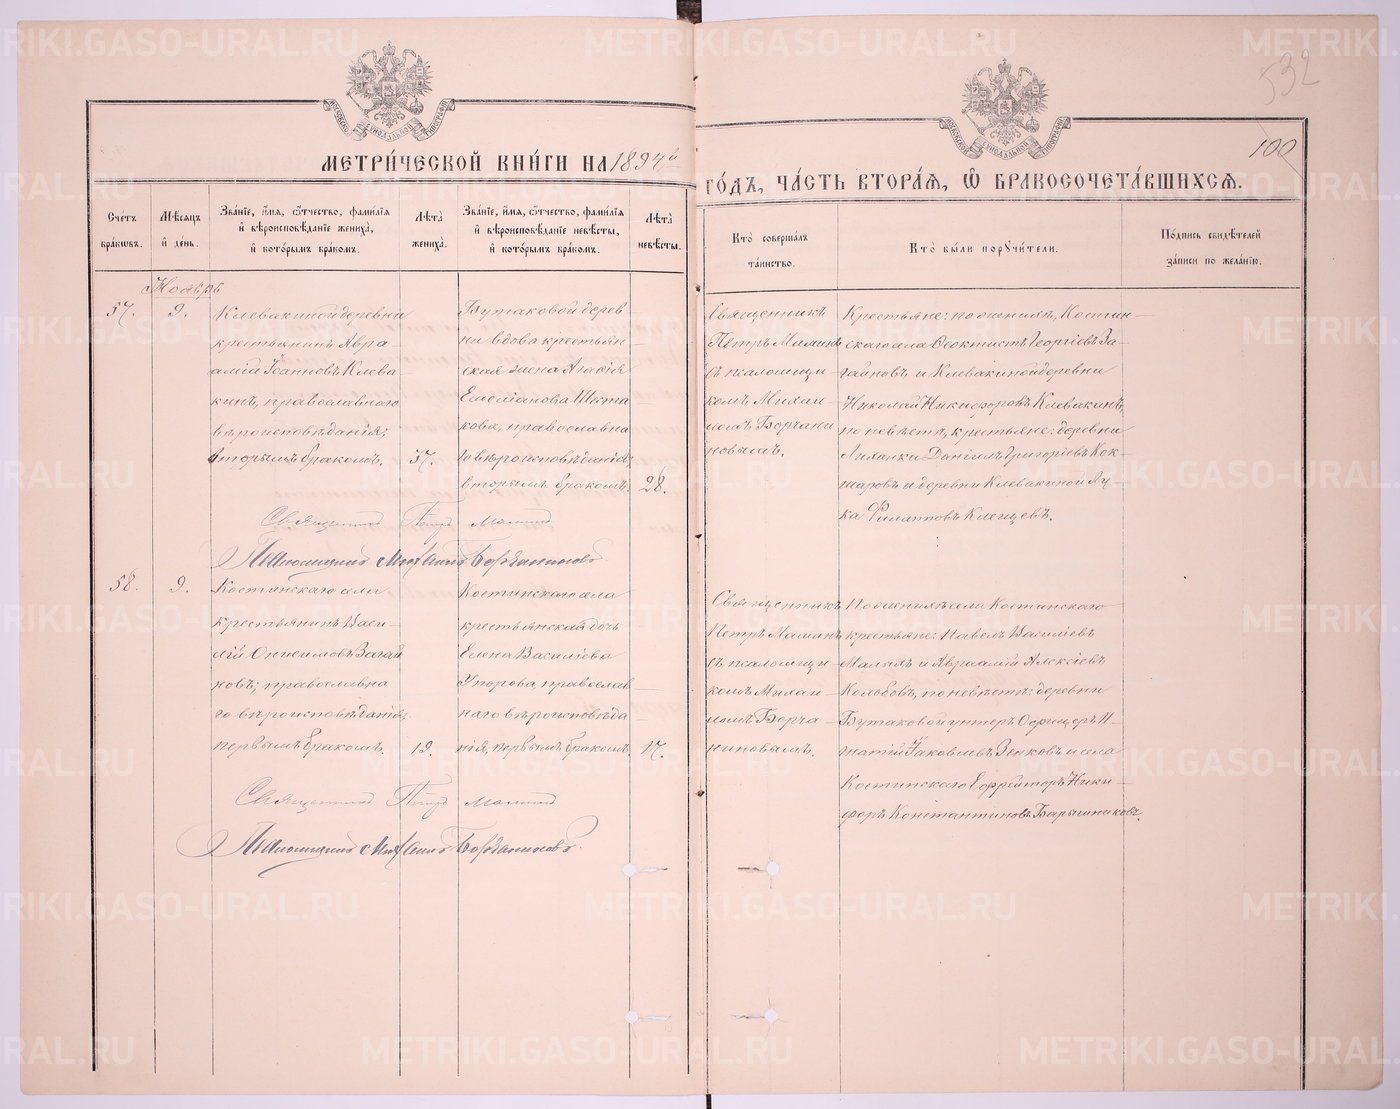 532
100
МОСКОВСКОЙ СѴНОДАЛЬНОЙ ТИПОГРАФІИ
МОСКОВСКОЙ СѴНОДАЛЬНОЙ ТИПОГРАФІИ
МЕТРИ́ЧЕСКОЙ КНИ́ГИ НА 1894й
ГО́ДЪ, ЧА́СТЬ ВТОРА́Я, Ѡ҆ БРАКОСОЧЕТА́ВШИХСЯ.
Сче́тъ бра́кѡвъ.
Мѣ́сяцъ и҆ де́нь.
Зва́нїе, и҆́мя, ѻ҆́тчество, фамилїя и҆ вѣроисповѣ́данїе жениха̀, и҆ кото́рымъ бра́комъ.
Лѣ́та жениха̀.
Зва́нїе, и҆́мя, ѻ҆́тчество, фамилїя и҆ вѣроисповѣ́данїе невѣ́сты, и҆ кото́рымъ бра́комъ.
Лѣ́та невѣ́сты.
Кто̀ соверша́лъ та́инство.
Кто̀ бы́ли порꙋчи́тели.
По́дпись свидѣ́телей за́писи по жела́нїю.
Ноябрь
57.
9.
Клевакиной деревни
крестьянинъ Авра
амій Іоанновъ Клева
кинъ, православнаго
вѣроисповѣданія;
вторымъ бракомъ.
37.
Бутаковой дерев
ни вдова крестьян
ская жена Агафія
Емеліанова Шкта
кова, православна
го вѣроисповѣданія,
вторымъ бракомъ.
28.
Священникъ
Петръ Маминъ
съ псаломщи
комъ Михаи
ломъ Борчани
новымъ.
Крестьяне: по женихѣ, Костин
скаго села Феоктистъ Георгіевъ За
гайновъ и Клевакиной деревни
Николай Никифоровъ Клевакинъ,
по невѣстѣ, крестьяне: деревни
Лиханки Даніилъ Григоріевъ Кок
шаровъ и деревни Клевакиной Лу
ка Филипповъ Клепцевъ.
Священникъ Петръ Маминъ
Псаломщикъ Михаилъ Борчаниновъ
58.
9.
Костинскаго села
крестьянинъ Васи
лій Онисимовъ Загай
новъ; православна
го вѣроисповѣданія;
первымъ бракомъ.
19.
Костинскаго села
крестьянская дочь
Елена Василіева
Упорова, православ
наго вѣроисповѣда
нія, первымъ бракомъ.
17.
Священникъ
Петръ Маминъ
съ псаломщи
комъ Михаи
ломъ Борча
ниновымъ.
По женихѣ села Костинскаго
крестьяне: Павелъ Василіевъ
Малыхъ и Авраамій Алексіевъ
Колобовъ, по невѣстѣ: деревни
Бутаковой унтеръ Офицеръ И
гнатій Іаковлевъ Зенковъ и села
Костинскаго Ефрейторъ Ники
форъ Константиновъ Барышниковъ.
Священникъ Петръ Маминъ
Псаломщикъ Михаилъ Борчаниновъ.